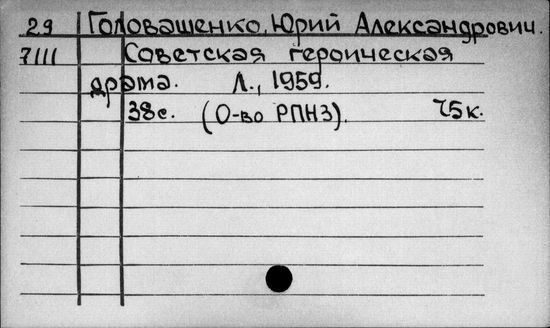 29 Головашенко, Юрий Александрович.
7111 Советская героическая
драма. Л., 1959.
38с. (О-во РПНЗ). 75к.